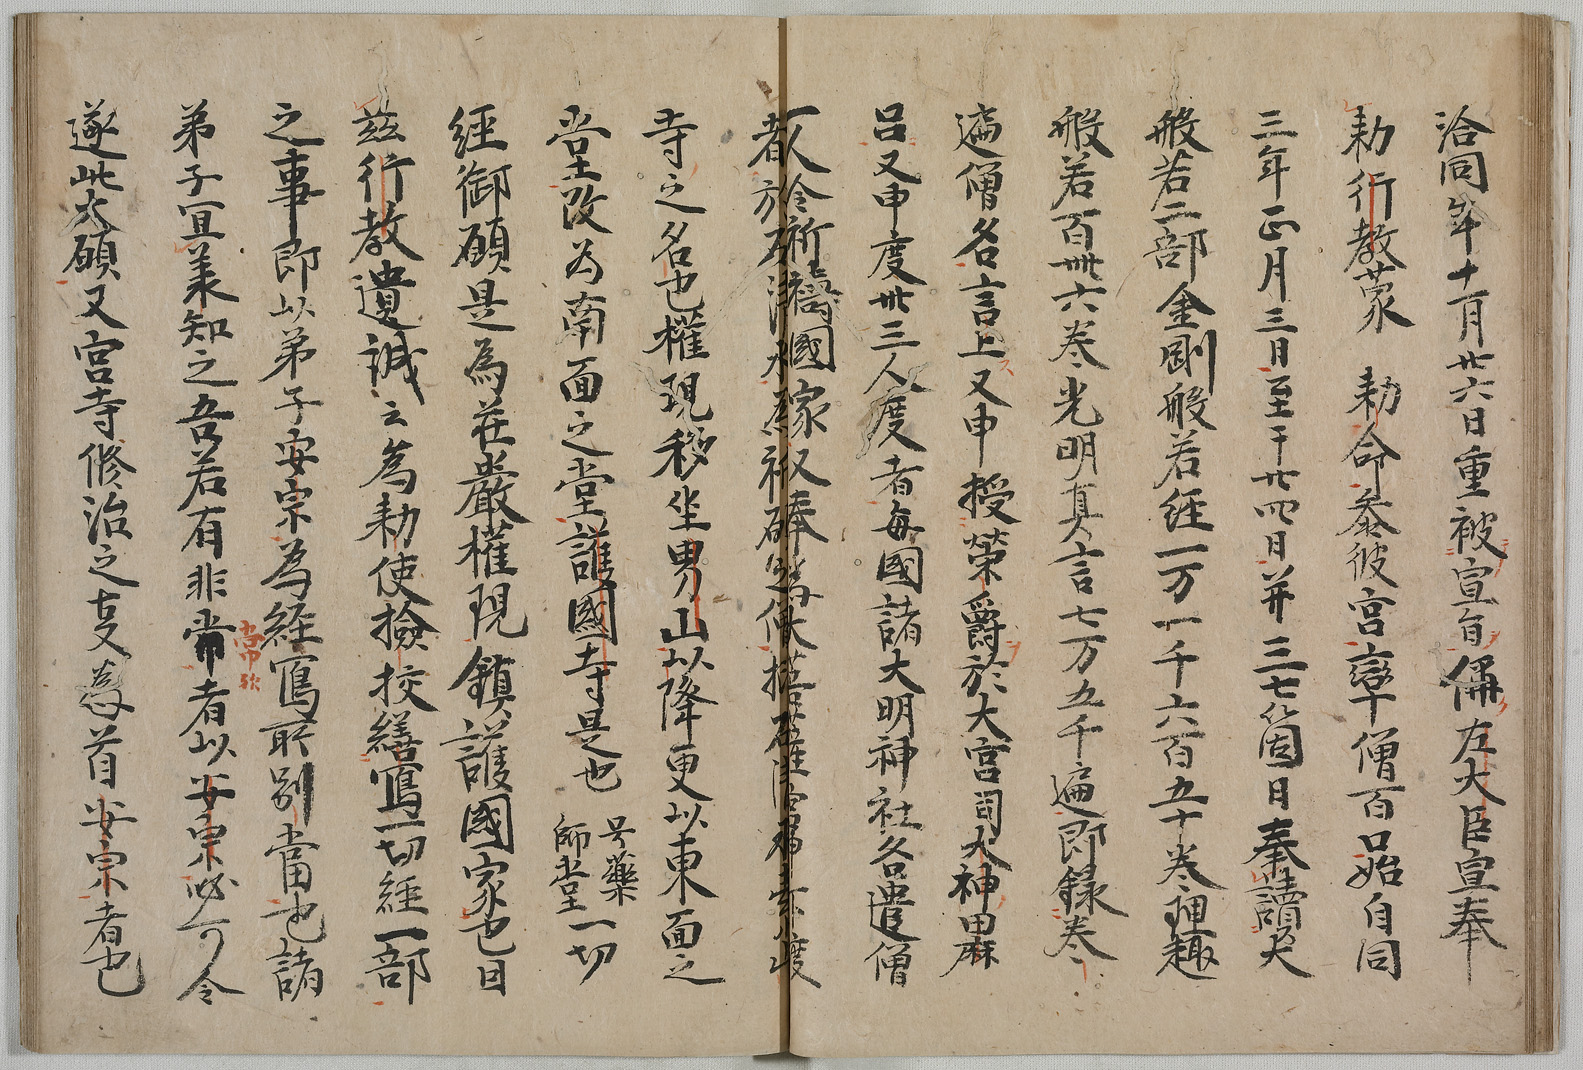 洽同年十一月廿六日重被宣旨偁左大臣宣奉
勅行教蒙　勅命参彼宮率僧百口始自同
三年正月三日至于廿四月并三七箇日奉讀大
般若二部金剛般若経一万一千六百五十巻理趣
般若百卌六巻光明真言七万五千遍即録巻
遍僧名言上又申授榮爵於大宮司大神田麻
呂又申度卅三人度者毎國諸大明神社各遣僧
一人令祈禱國家又奉
者於石清水
寺之名也權現移坐男山以降更以東面之
堂改為南面之堂護國寺是也号藥師堂一切
経御願是為荘嚴權現鎮護國家也因
茲行教遺誡云為勅使撿挍繕寫一切経一部
之事即以弟子安宗為経寫所別當也諸
弟子宜羕知之吾若有非常者以安宗必可令
常歟
遂此大願又宮寺修治之首安宗者也